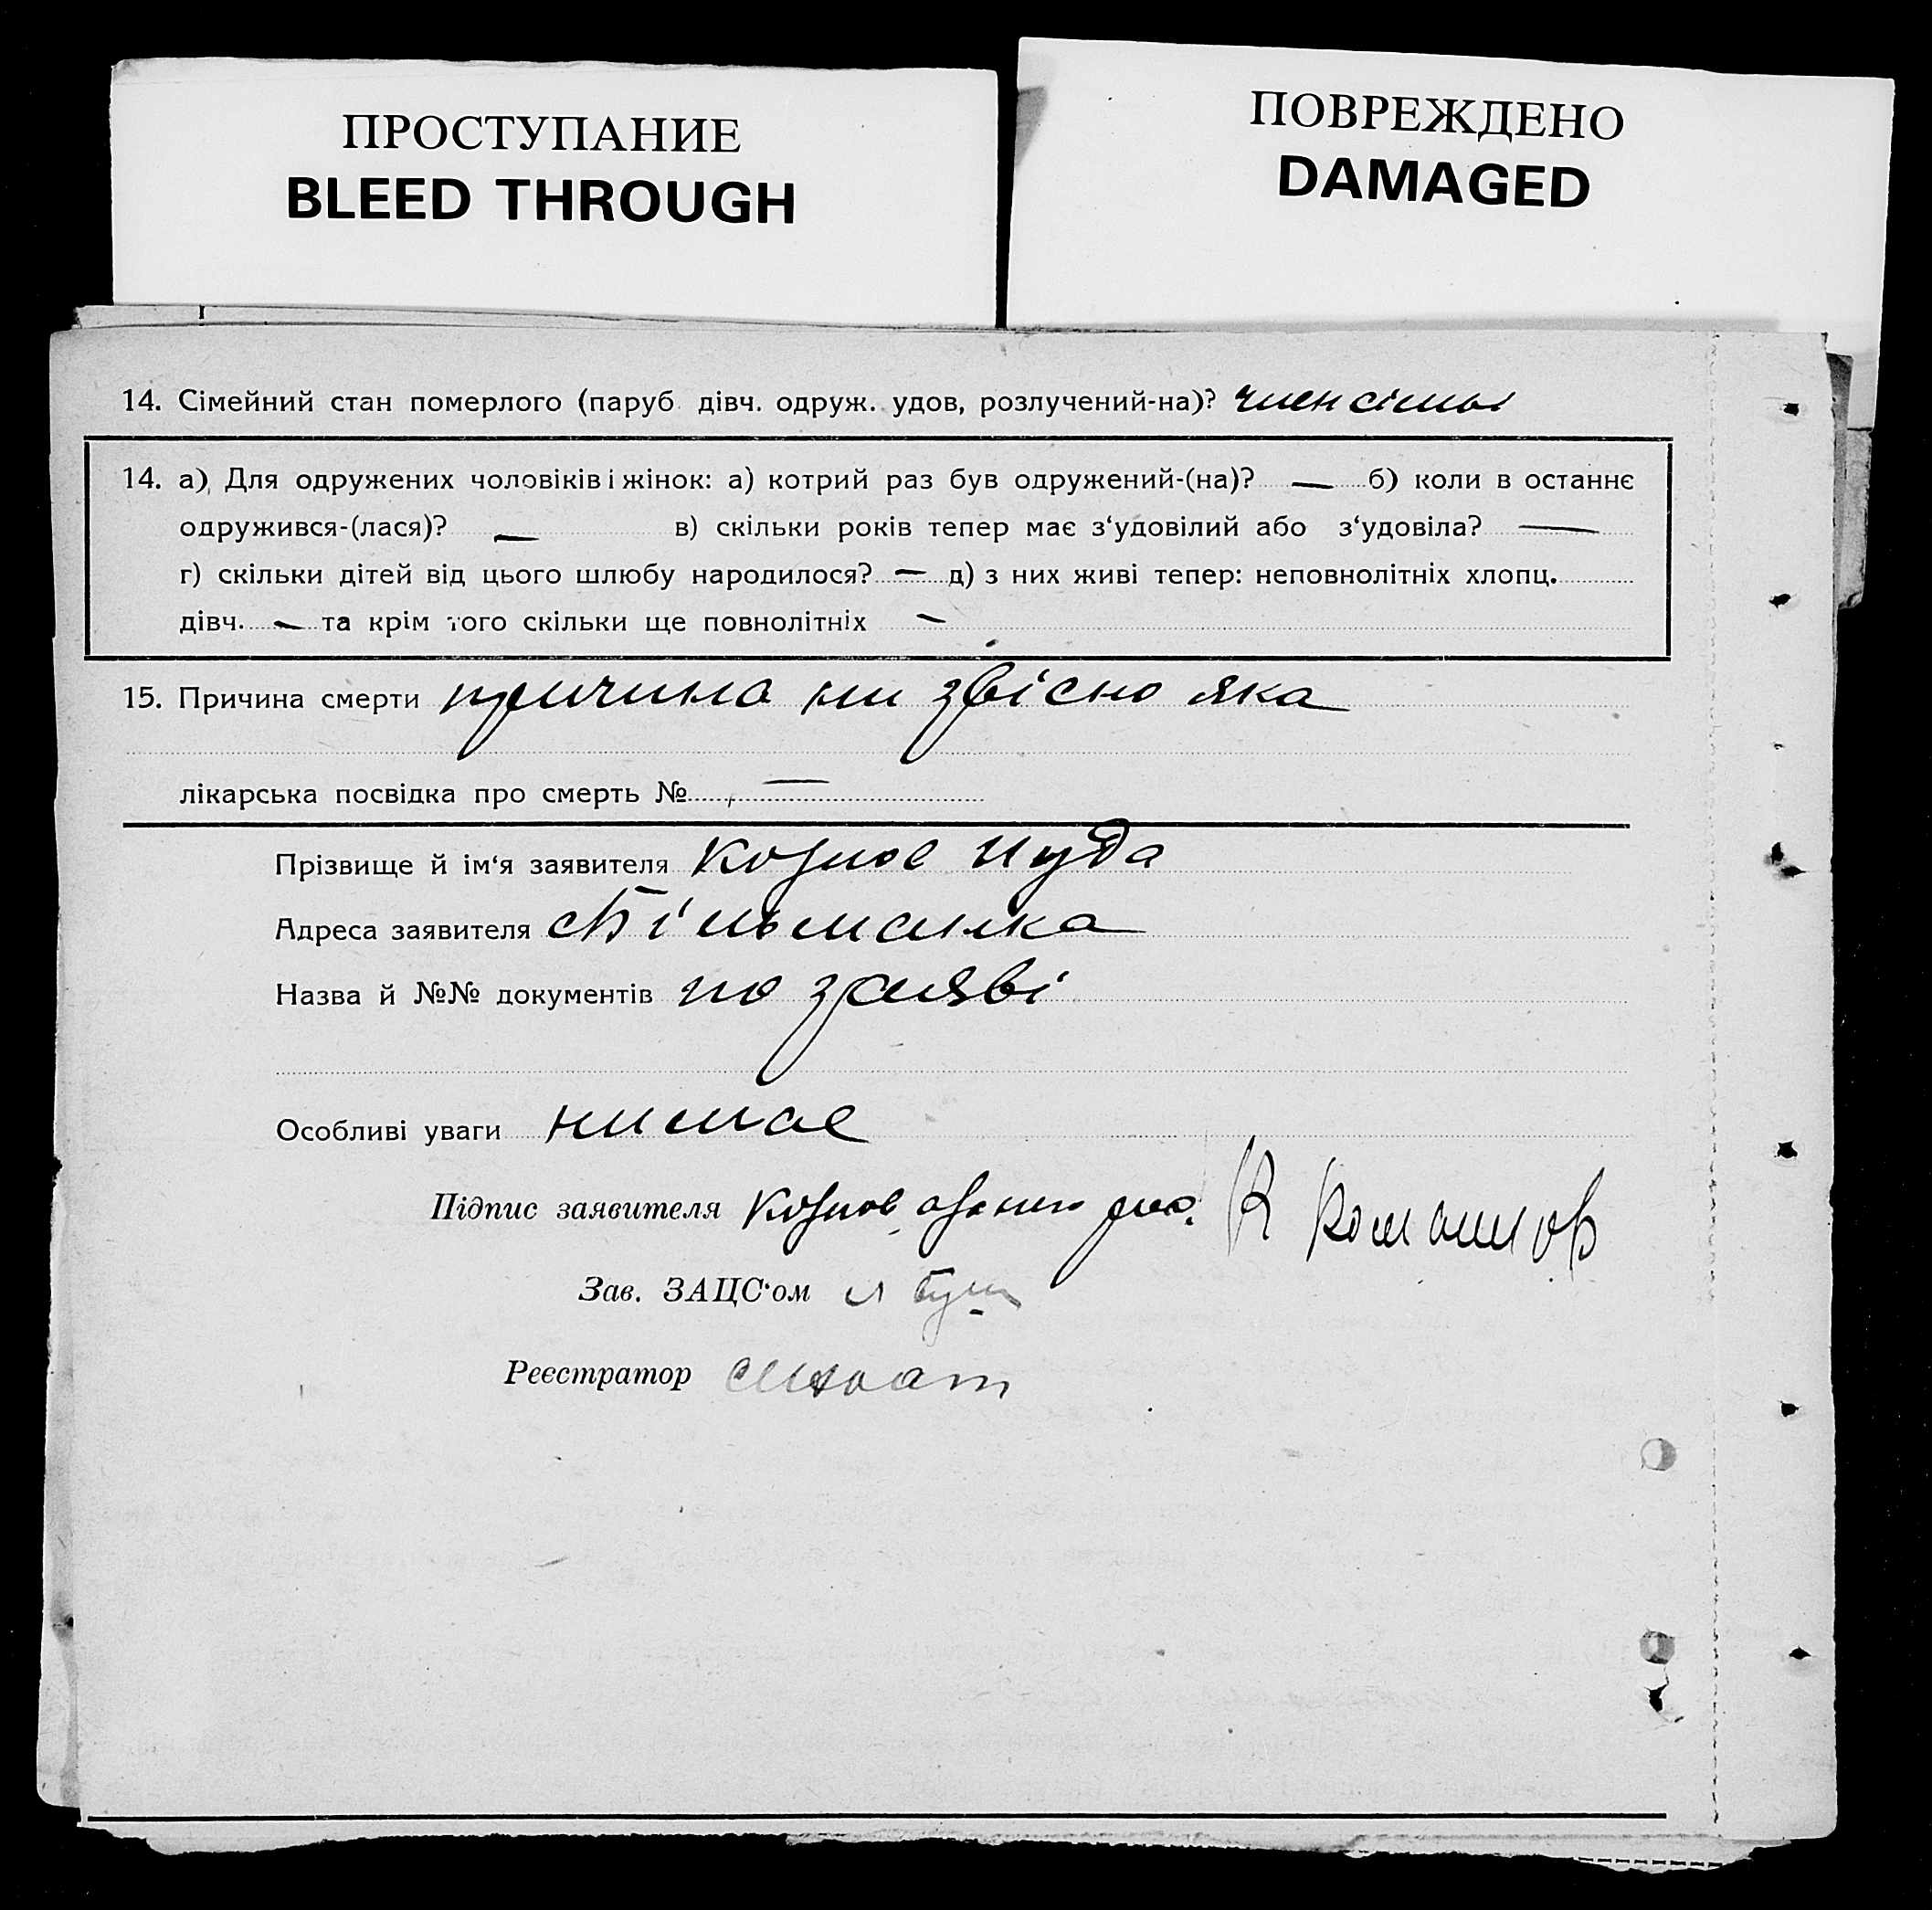 ПРОСТУПАНИЕ
BLEED THROUGH
ПОВРЕЖДЕНО
DAMAGED
14. Сімейний стан померлого (паруб. дівч. одруж. удов, розлучений-на)? член сімьі
14. а) Для одружених чоловіків і жінок: а) котрий раз був одружений-(на)? — б) коли в останнє
одружився-(лася)? — в) скільки років тепер має з‘удовілий або з‘удовіла? —
г) скільки дітей від цього шлюбу народилося? — д) з них живі тепер: неповнолітніх хлопц.
дівч. — та крім того скільки ще повнолітніх —
15. Причина смерти причина ни звісно яка
лікарська посвідка про смерть № —
Прізвище й ім‘я заявителя
Адреса заявителя сБільманка
Назва й №№ документів по заяві
Особливі уваги нимае
Підпис заявителя
Зав. ЗАЦС‘ом
Реєстратор